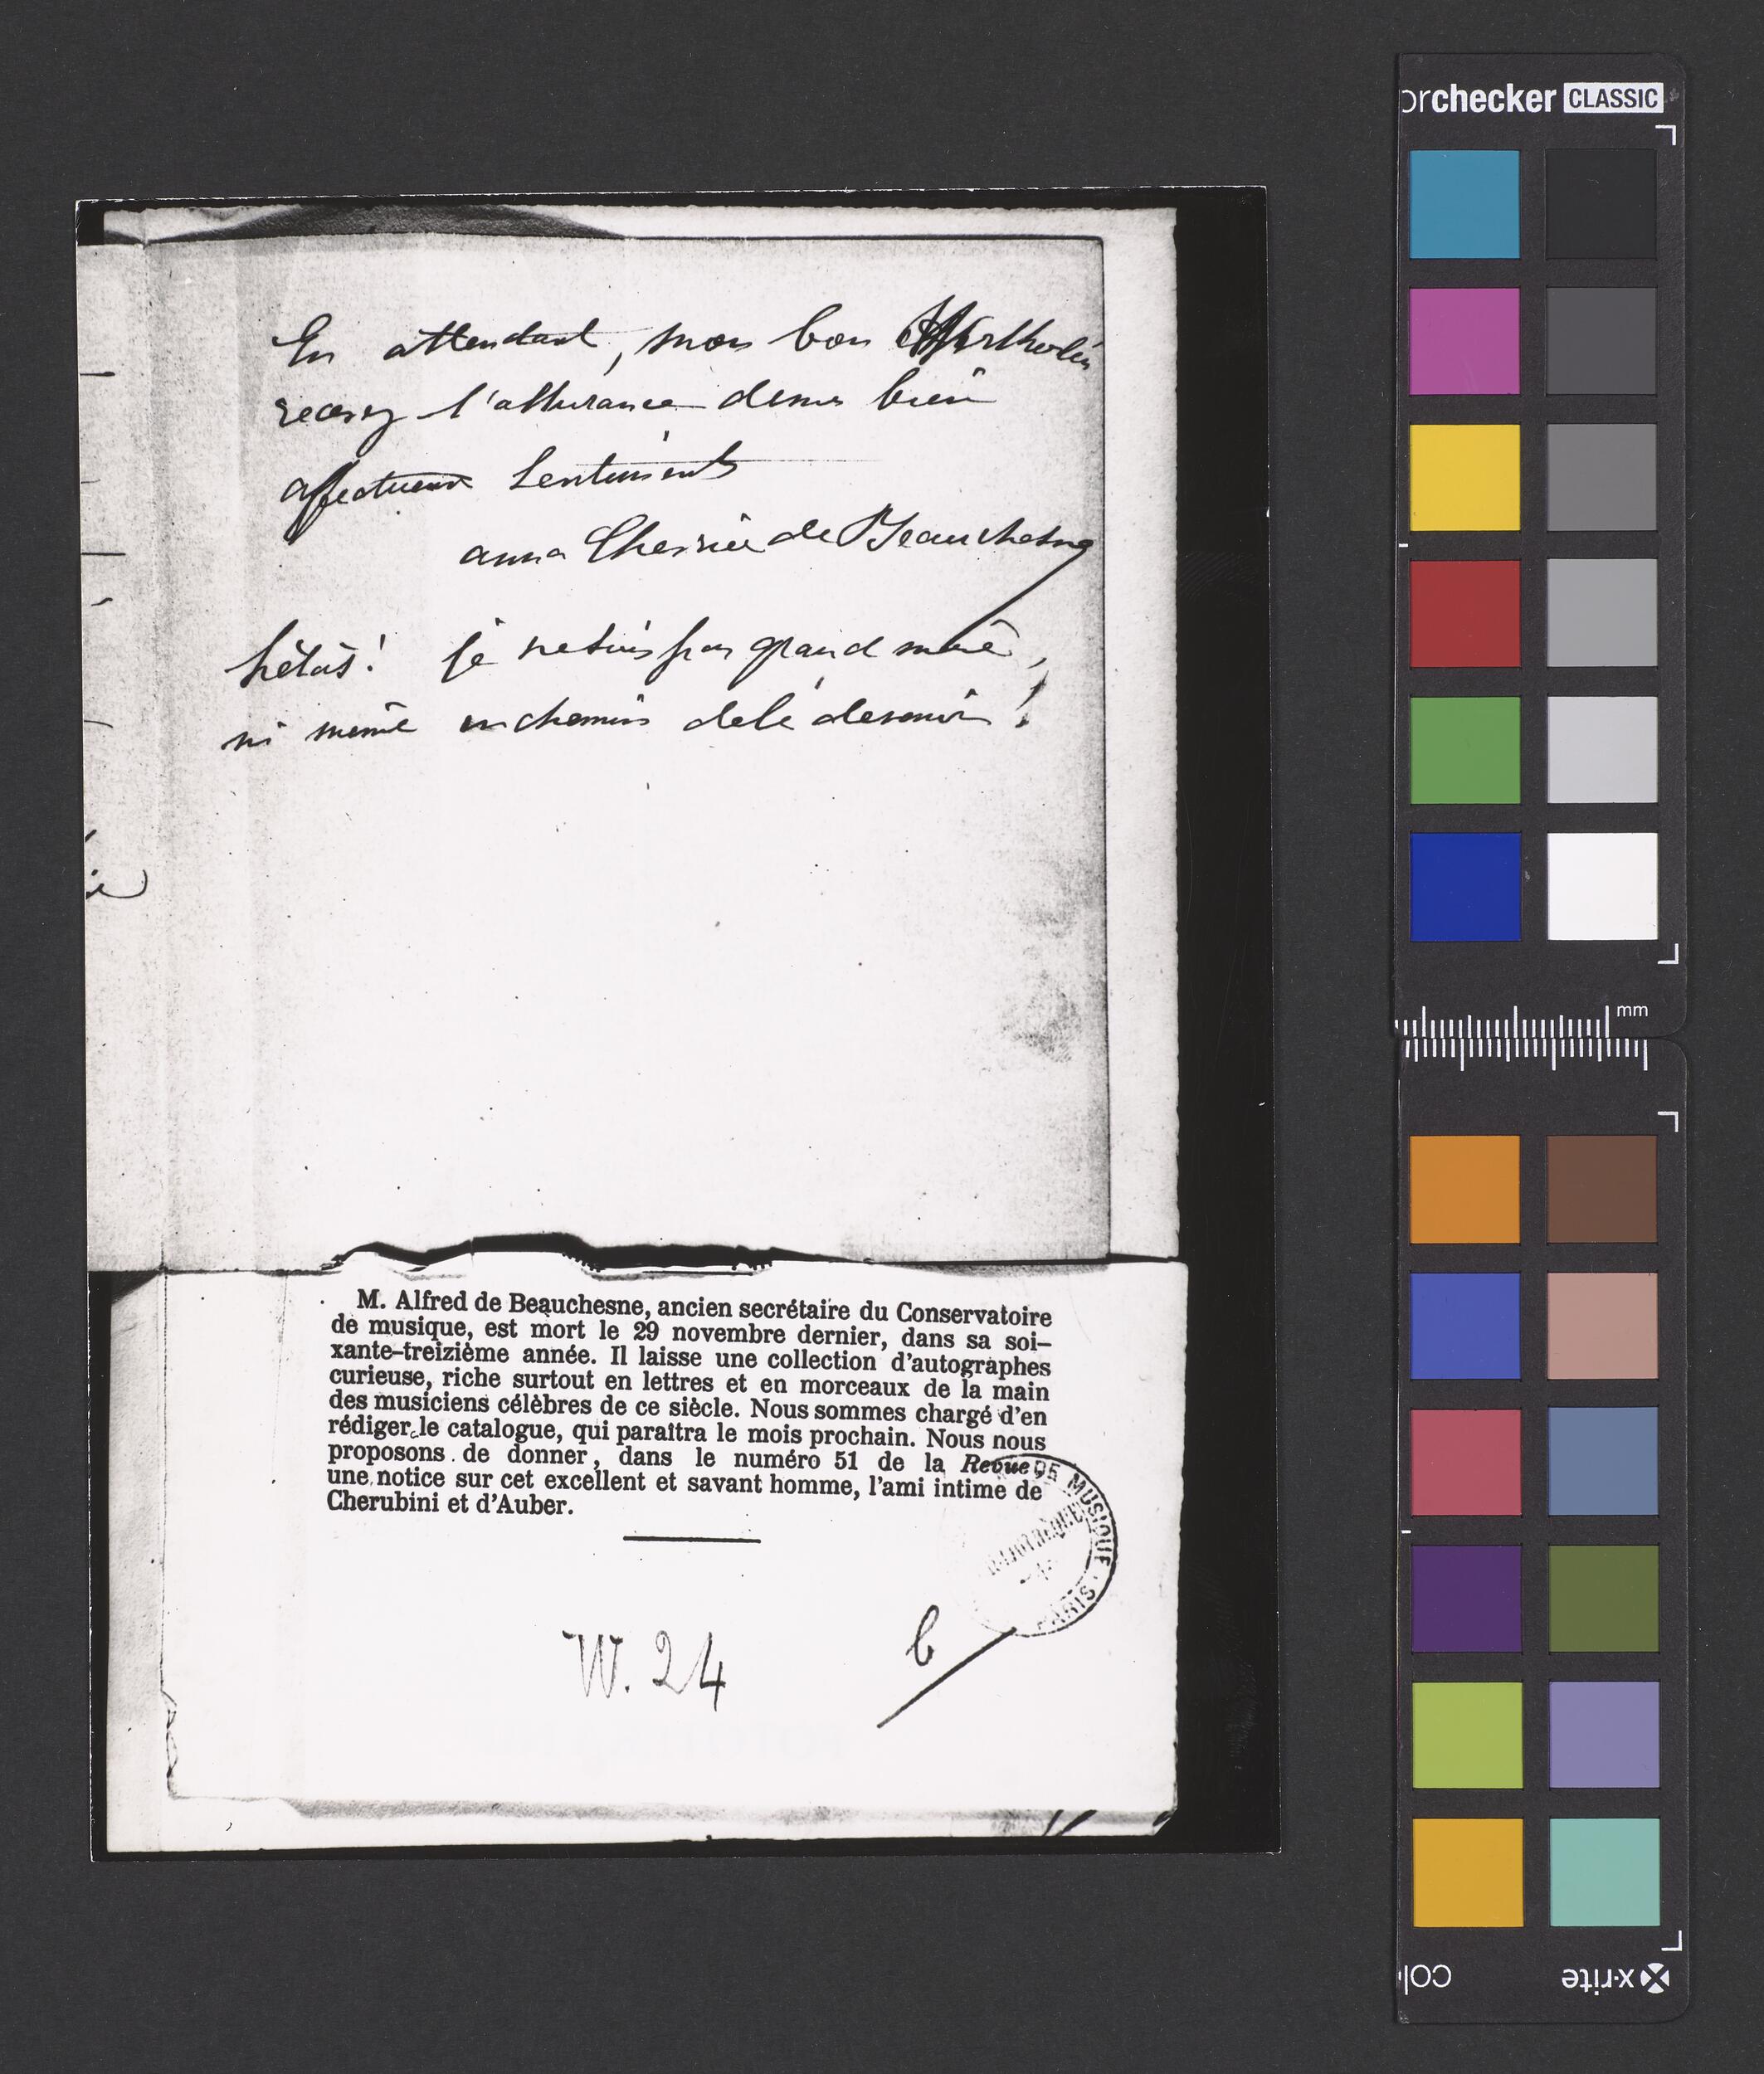 En attendant, mon bon
recevez l'assurance de mes bien
affectueux sentiments
anna de Beauchesne
hélas! je ne suis pas grand mère,
ni même en chemin de le devenir!
M. Alfred de Beauchesne, ancien secrétaire du Conservatoire
de musique, est mort le 29 novembre dernier, dans sa soi-
xante-treizième année. Il laisse une collection d'autographes
curieuse, riche surtout en lettres et en morceaux de la main
des musiciens célèbres de ce siècle. Nous sommes chargé d'en
rédiger le catalogue, qui paraîtra le mois prochain. Nous nous
proposons de donner, dans le numéro 51 de la Revue
une notice sur cet excellent et savant homme, l'ami intime de
Cherubini et d'Auber.
DE MUSIQUE · PARIS
BIBLIOTHÈQUE
W. 24
6
orchecker CLASSIC
mm
x-rite
col